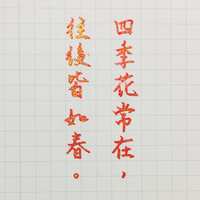 四季花常在，
往後皆如春。